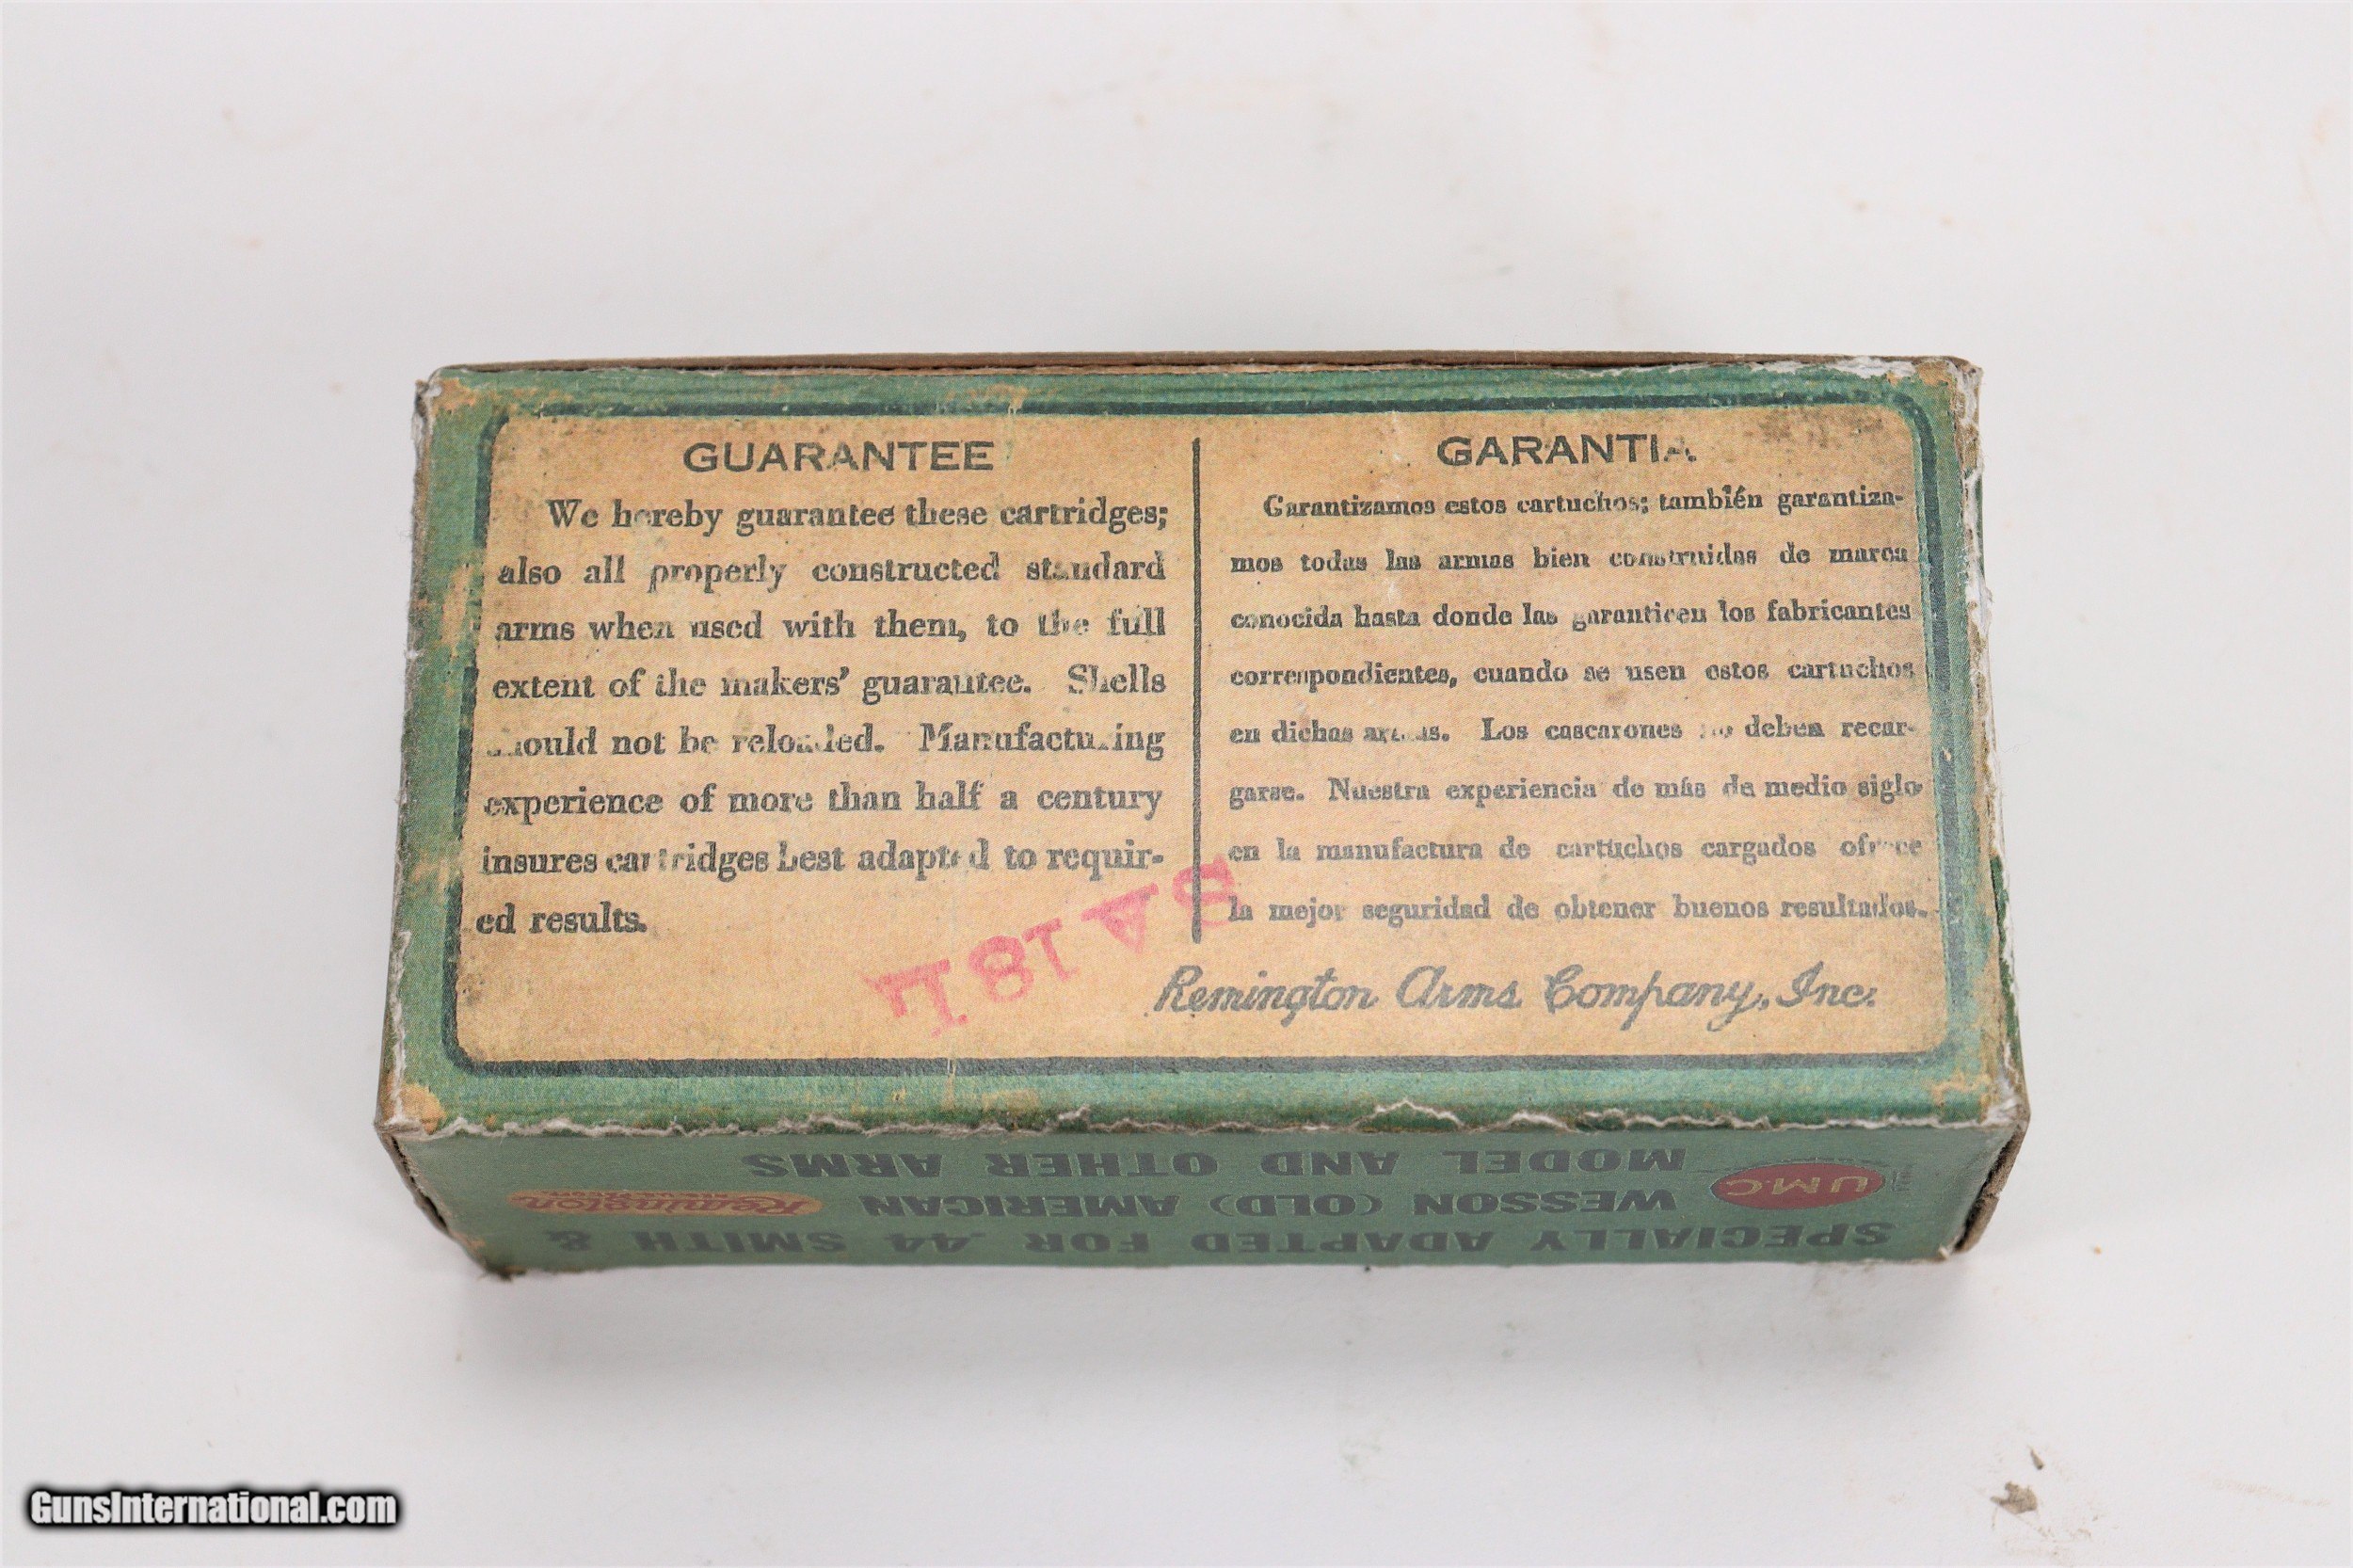 GUARANTEE
We hereby guarantee these cartridges;
also all properly constructed standard
arms when used with them, to the full
extent of the makers' guarantee. Shells
should not be reloaded. Manufacturing
experience of more than half a century
insures cartridges best adapted to requir-
ed results.
GARANTIA
Garantizamos estos cartuchos; también garantiza-
mos todas las armas bien construidas de marca
conocida hasta donde las garanticen los fabricantes
correspondientes, cuando se usen estos cartuchos
en dichas armas. Los cascarones no deben recar-
garse. Nuestra experiencia de más de medio siglo
en la manufactura de cartuchos cargados ofrece
la mejor seguridad de obtener buenos resultados.
Remington Arms Company, Inc.
SPECIALLY ADAPTED FOR .44 SMITH &
WESSON (OLD) AMERICAN
MODEL AND OTHER ARMS
U.M.C.
Remington
GunsInternational.com